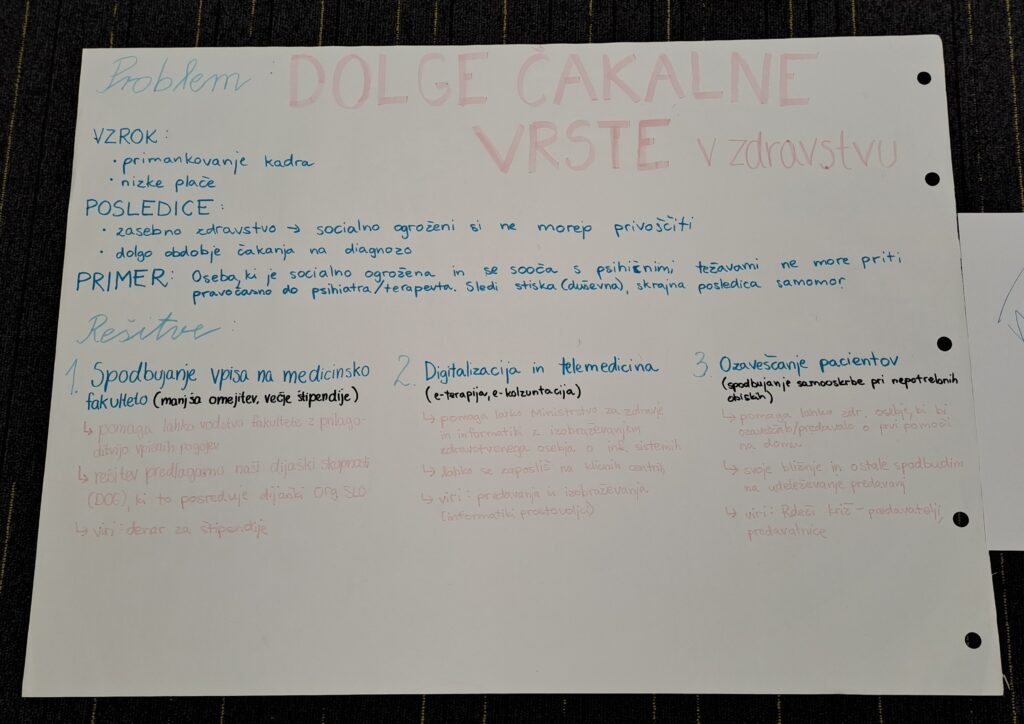 Problem : DOLGE ČAKALNE
VRSTE v zdravstvu
VZROK :
• primankovanje kadra
• nizke plače
POSLEDICE :
• zasebno zdravstvo → socialno ogroženi si ne morejo privoščiti
• dolgo obdobje čakanja na diagnozo
PRIMER: Oseba, ki je socialno ogrožena in se sooča s psihičnimi težavami ne more priti
pravočasno do psihiatra/terapevta. Sledi stiska (duševna), skrajna posledica samomor.
Rešitve :
1. Spodbujanje vpisa na medicinsko
fakulteto (manjša omejitev, večje štipendije)
↳ pomaga lahko vodstvo fakultete z prilago-
ditvijo vpisnih pogojev
↳ rešitev predlagamo naši dijaški skupnosti
(DOG), ki to posreduje dijaški org SLO
↳ viri: denar za štipendije
2. Digitalizacija in telemedicina
(e-terapija, e-kolzuntacija)
↳ pomaga lahko Ministrstvo za zdravje
in informatiki z izobraževanjem
zdravstvenega osebja o inf. sistemih
↳ lahko se zaposliš na klicnih centrih
↳ viri: predavanja in izobraževanja
(informatiki prostovoljci)
3. Ozaveščanje pacientov
(spodbujanje samooskrbe pri nepotrebnih
obiskih)
↳ pomaga lahko zdr. osebje, ki bi
ozaveščalo/predavalo o prvi pomoči
na domu
↳ svoje bližnje in ostale spodbudim
na udeleževanje predavanj
↳ viri: Rdeči križ - predavatelji,
predavalnice